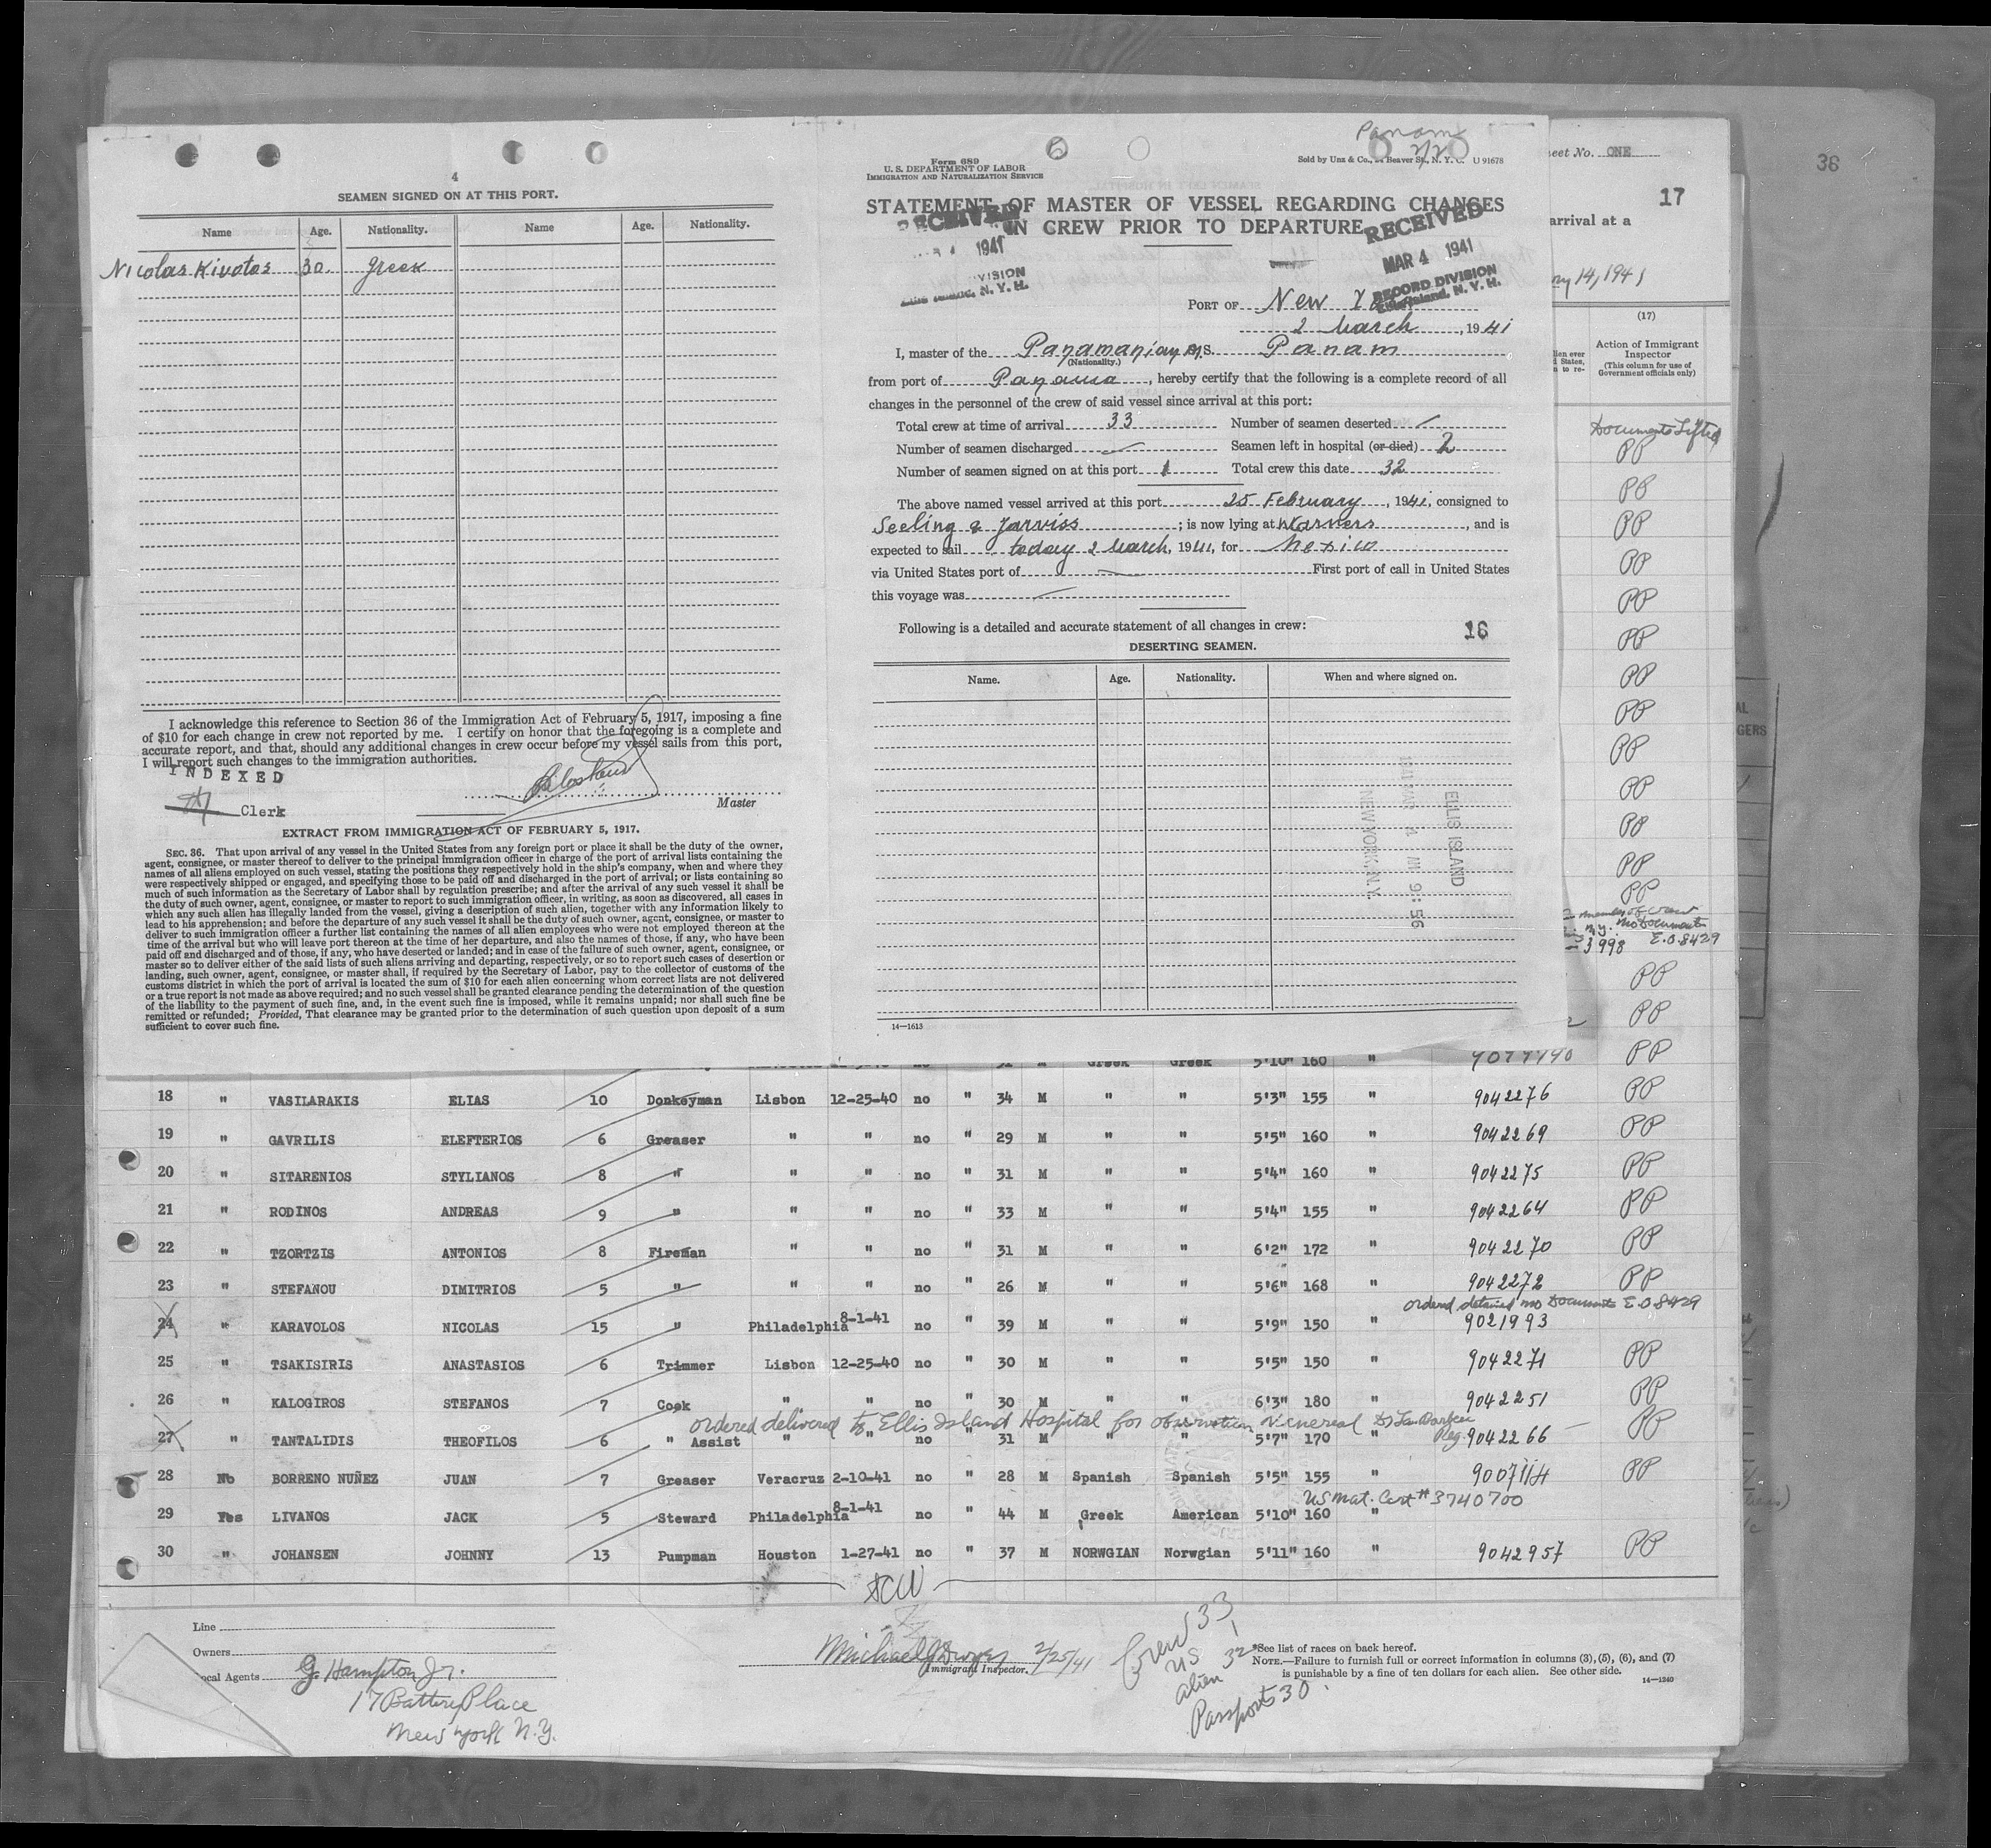 4
SEAMEN SIGNED ON AT THIS PORT.
Name Age. Nationality. Name Age. Nationality.
Nicolas Kivotos 30. Greek
I acknowledge this reference to Section 36 of the Immigration Act of February 5, 1917, imposing a fine
of $10 for each change in crew not reported by me. I certify on honor that the foregoing is a complete and
accurate report, and that, should any additional changes in crew occur before my vessel sails from this port,
I will report such changes to the immigration authorities.
INDEXED
Clerk
Master
EXTRACT FROM IMMIGRATION ACT OF FEBRUARY 5, 1917.
SEC. 36. That upon arrival of any vessel in the United States from any foreign port or place it shall be the duty of the owner,
agent, consignee, or master thereof to deliver to the principal immigration officer in charge of the port of arrival lists containing the
names of all aliens employed on such vessel, stating the positions they respectively hold in the ship's company, when and where they
were respectively shipped or engaged, and specifying those to be paid off and discharged in the port of arrival; or lists containing so
much of such information as the Secretary of Labor shall by regulation prescribe; and after the arrival of any such vessel it shall be
the duty of such owner, agent, consignee, or master to report to such immigration officer, in writing, as soon as discovered, all cases in
which any such alien has illegally landed from the vessel, giving a description of such alien, together with any information likely to
lead to his apprehension; and before the departure of any such vessel it shall be the duty of such owner, agent, consignee, or master to
deliver to such immigration officer a further list containing the names of all alien employees who were not employed thereon at the
time of the arrival but who will leave port thereon at the time of her departure, and also the names of those, if any, who have been
paid off and discharged and of those, if any, who have deserted or landed; and in case of the failure of such owner, agent, consignee, or
master so to deliver either of the said lists of such aliens arriving and departing, respectively, or so to report such cases of desertion or
landing, such owner, agent, consignee, or master shall, if required by the Secretary of Labor, pay to the collector of customs of the
customs district in which the port of arrival is located the sum of $10 for each alien concerning whom correct lists are not delivered
or a true report is not made as above required; and no such vessel shall be granted clearance pending the determination of the question
of the liability to the payment of such fine, and, in the event such fine is imposed, while it remains unpaid; nor shall such fine be
remitted or refunded; Provided, That clearance may be granted prior to the determination of such question upon deposit of a sum
sufficient to cover such fine.
Panam
Form 689
U. S. DEPARTMENT OF LABOR
IMMIGRATION AND NATURALIZATION SERVICE
Sold by Unz & Co., Beaver St., N. Y. C. U 91678
STATEMENT OF MASTER OF VESSEL REGARDING CHANGES
IN CREW PRIOR TO DEPARTURE
RECEIVED
1941
VISION
N. Y. H.
RECEIVED
MAR 4 1941
RECORD DIVISION
Ellis Island, N. Y. H.
PORT OF New
2 March, 1941
I, master of the Panamanian M.S. Panam
(Nationality.)
from port of Panama, hereby certify that the following is a complete record of all
changes in the personnel of the crew of said vessel since arrival at this port:
Total crew at time of arrival 33 Number of seamen deserted
Number of seamen discharged Seamen left in hospital (or died) 2
Number of seamen signed on at this port 1 Total crew this date 32
The above named vessel arrived at this port 25 February, 1941, consigned to
Seeling & Jarviss; is now lying at Warners, and is
expected to sail today 2 March, 1941, for Mexico
via United States port of First port of call in United States
this voyage was
Following is a detailed and accurate statement of all changes in crew:
16
DESERTING SEAMEN.
Name. Age. Nationality. When and where signed on.
ELLIS ISLAND
1941 MAR 4 AM 9:56
NEW YORK, N.Y.
14—1613
eet No. ONE
36
17
arrival at a
14, 1941
(17)
Action of Immigrant
Inspector
(This column for use of
Government officials only)
Documents Lifted
PP
PP
PP
PP
PP
PP
PP
PP
PP
PP
PP
PP
PP
member of crew
no Documents
3998 E.O 8429
PP
PP
Greek Greek 5'10" 160 " PP
18 " VASILARAKIS ELIAS 10 Donkeyman Lisbon 12-25-40 no " 34 M " " 5'3" 155 " 9042276 PP
19 " GAVRILIS ELEFTERIOS 6 Greaser " " no " 29 M " " 5'5" 160 " 9042269 PP
20 " SITARENIOS STYLIANOS 8 " " " no " 31 M " " 5'4" 160 " 9042275 PP
21 " RODINOS ANDREAS 9 " " " no " 33 M " " 5'4" 155 " 9042264 PP
22 " TZORTZIS ANTONIOS 8 Fireman " " no " 31 M " " 6'2" 172 " 9042270 PP
23 " STEFANOU DIMITRIOS 5 " " " no " 26 M " " 5'6" 168 " 9042272 PP
ordered detained no Documents E.O 8429
24 " KARAVOLOS NICOLAS 15 " Philadelphia 8-1-41 no " 39 M " " 5'9" 150 " 9021993
25 " TSAKISIRIS ANASTASIOS 6 Trimmer Lisbon 12-25-40 no " 30 M " " 5'5" 150 " 9042271 PP
26 " KALOGIROS STEFANOS 7 Cook " " no " 30 M " " 6'3" 180 " 9042251 PP
ordered delivered to Ellis Island Hospital for observation venereal
27 " TANTALIDIS THEOFILOS 6 " Assist " " no " 31 M " " 5'7" 170 " 9042266 PP
28 No BORRENO NUÑEZ JUAN 7 Greaser Veracruz 2-10-41 no " 28 M Spanish Spanish 5'5" 155 " 9007114 PP
US Nat. Cert # 3740700
29 Yes LIVANOS JACK 5 Steward Philadelphia 8-1-41 no " 44 M Greek American 5'10" 160 "
30 " JOHANSEN JOHNNY 13 Pumpman Houston 1-27-41 no " 37 M NORWGIAN Norwgian 5'11" 160 " 9042957 PP
Line
Owners
ocal Agents G. Hampton Jr.
17 Battery Place
New York N.Y.
Michael J Dwyer 2/25/41
Immigrant Inspector.
Crew 33
US 1
alien 32
Passports 30
*See list of races on back hereof.
NOTE.—Failure to furnish full or correct information in columns (3), (5), (6), and (7)
is punishable by a fine of ten dollars for each alien. See other side.
14—1240